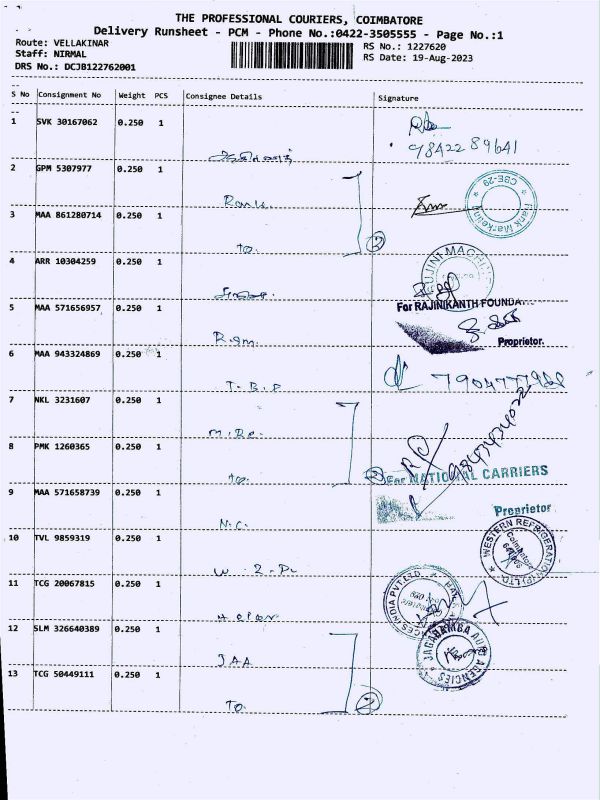 THE PROFESSIONAL COURIERS, COIMBATORE
Delivery Runsheet - PCM - Phone No.:0422-3505555 - Page No.:1
Route: VELLAKINAR
Staff: NIRMAL
DRS No.: DCJB122762001
RS No.: 1227620
RS Date: 19-Aug-2023
S No Consignment No Weight PCS Consignee Details Signature
1 SVK 30167062 0.250 1
9842289641
2 GPM 5307977 0.250 1
CBE-29
3 MAA 861280714 0.250 1
To. 2
4 ARR 10304259 0.250 1
For RAJINIKANTH FOUNDA
5 MAA 571656957 0.250 1
Proprietor.
6 MAA 943324869 0.250 1
T.B.P
7 NKL 3231607 0.250 1
8 PMK 1260365 0.250 1
To. 2
For NATIONAL CARRIERS
9 MAA 571658739 0.250 1
N.C.
Proprietor
10 TVL 9859319 0.250 1
WESTERN REFRIGERATION (P) LTD.
Coimbatore
11 TCG 20067815 0.250 1
12 SLM 326640389 0.250 1
JAA
JAGADAMBA AUTO AGENCIES
13 TCG 50449111 0.250 1
To. 2